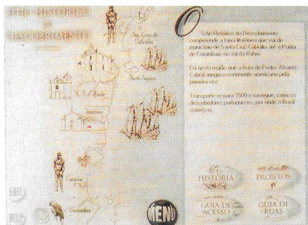 SÍTIO HISTÓRICO
DO
DESCOBRIMENTO
O Sítio Histórico do Descobrimento
compreende a faixa litorânea que vai do
município de Santa Cruz Cabrália até a Ponta
de Corumbau, no sul da Bahia.
Foi nesta região que a frota de Pedro Álvares
Cabral atingiu o continente americano pela
primeira vez.
Transporte-se para 1500 e navegue, como os
descobridores portugueses, por onde o Brasil
começou.
Santa Cruz
Cabrália
Porto Seguro
Caraíva
Corumbau
HISTÓRIA
PROJETOS
GUIA DE
ACESSO
GUIA DE
RUAS
MENU